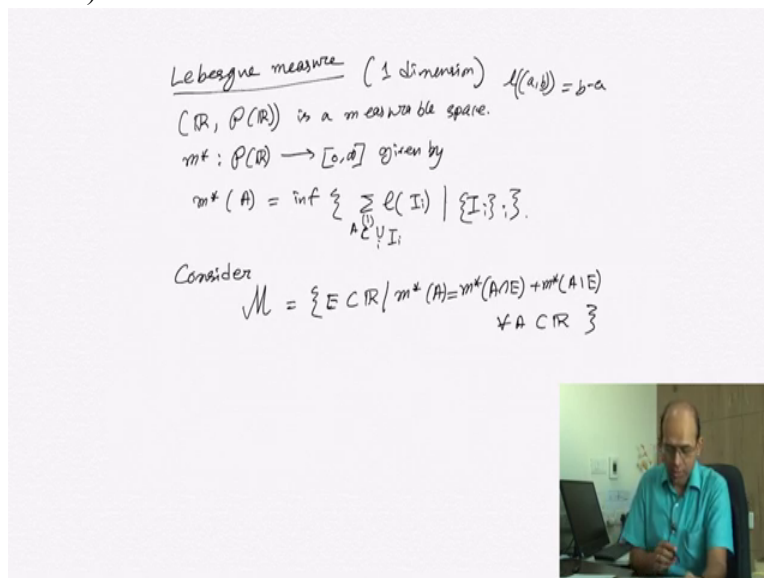 )
Lebesgue measure (1 dimension) l((a,b)) = b-a
(ℝ, P(ℝ)) is a measurable space.
m* : P(ℝ) ⟶ [0,∞] given by
m*(A) = inf { Σ l(I_i) | {I_i}_i }.
A ⊂ ∪_i I_i
Consider
M = { E ⊂ ℝ / m*(A) = m*(A∩E) + m*(A∖E)
∀ A ⊂ ℝ }